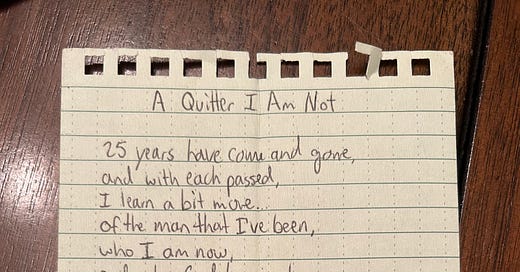 A Quitter I Am Not
25 years have come and gone,
and with each passed,
I learn a bit more...
of the man that I've been,
who I am now,